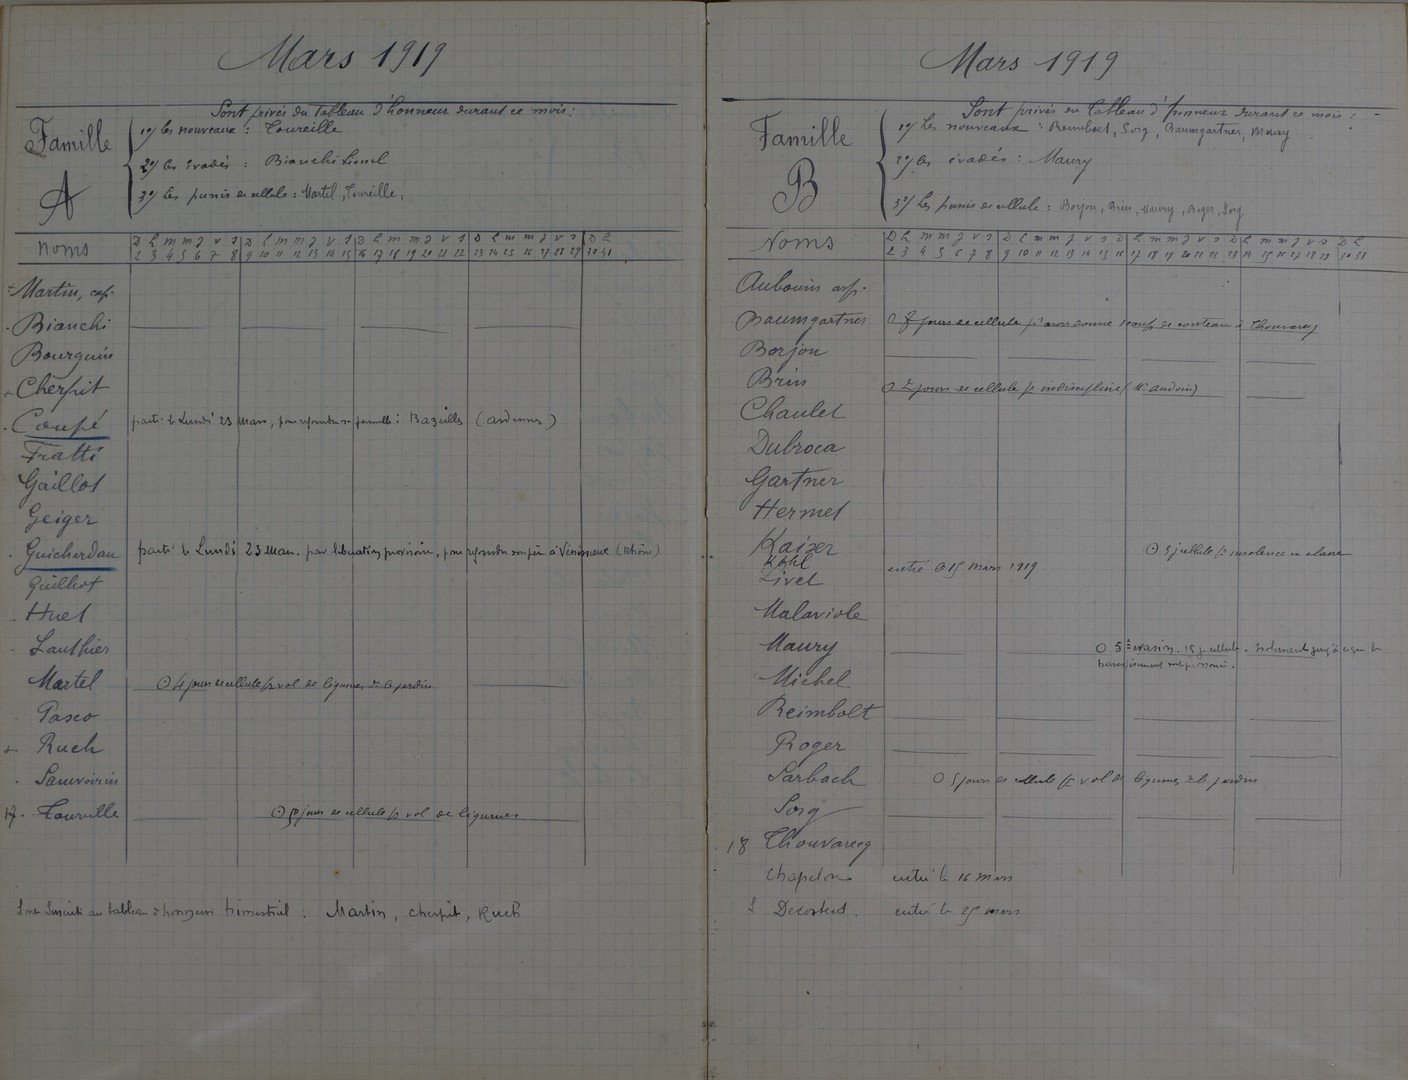 Mars 1919
Sont privés du Tableau d'honneur durant ce mois :
Famille
A
1º/ les nouveaux : Toureille
2º/ les évadés : Bianchi Lionel
3º/ Les punis de cellule : Martel, Toureille,
Noms
D L m m J v s D L m m J v s D L m m J v s D L m m J v s D L
2 3 4 5 6 7 8 9 10 11 12 13 14 15 16 17 18 19 20 21 22 23 24 25 26 27 28 29 30 31
Martin, cap.
Bianchi
Bourguin
Cherpit
Coupé parti le Lundi 23 Mars, pour rejoindre sa famille : Bazeilles (Ardennes)
Fratti
Gaillot
Geiger
Guicherdau parti le Lundi 23 Mars. par libération provisoire, pour rejoindre son père à Vénissieux (Rhône)
Guilhot
Huet
Lauthier
Martel O 4 jours de cellule p/ vol de légumes de le jardin
Pasco
Ruch
Sauvoirin
17. Tourville O 5 jours de cellule p/ vol de légumes
Sont Inscrits au tableau d'honneur trimestriel : Martin, Cherpit, Ruch
Mars 1919
Sont privés du Tableau d'honneur durant ce mois :
Famille
B
1º/ Les nouveaux : Reimbolt, Sorg, Baumgartner, Maury
2º/ les évadés : Maury
3º/ Les punis de cellule : Borjon, Brin, Maury, Roger, Sorg
Noms
D L m m J v s D L m m J v s D L m m J v s D L m m J v s D L
Aubouin asp.
Baumgartner O 8 jours de cellule p/ avoir donné 1 coup de couteau à Thouvarecq
Borjon
Brin O 2 jours de cellule p/ indiscipline (M. Audoin)
Chaulet
Dubroca
Gartner
Hermet
Kaiser O 5 j cellule p/ insolence en classe
Kohl entré le 15 mars 1919
Livet
Malaviole
Maury O 5e évasion. 15 j. cellule. Isolement jusqu'à ce que le
Michel
Reimbolt
Roger
Sarbach O 5 jours de cellule p/ vol de légumes de le jardin
Sorg
18 Thouvarecq
Chapelon entré le 16 mars
entré le 25 mars